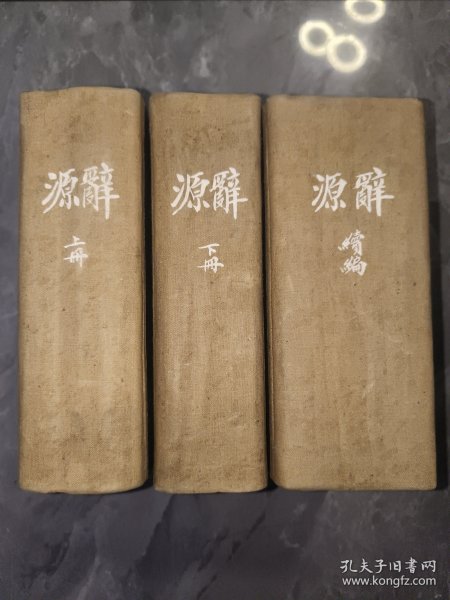 源辭
上冊
源辭
下冊
源辭
續編
孔夫子旧书网
www.kongfz.com